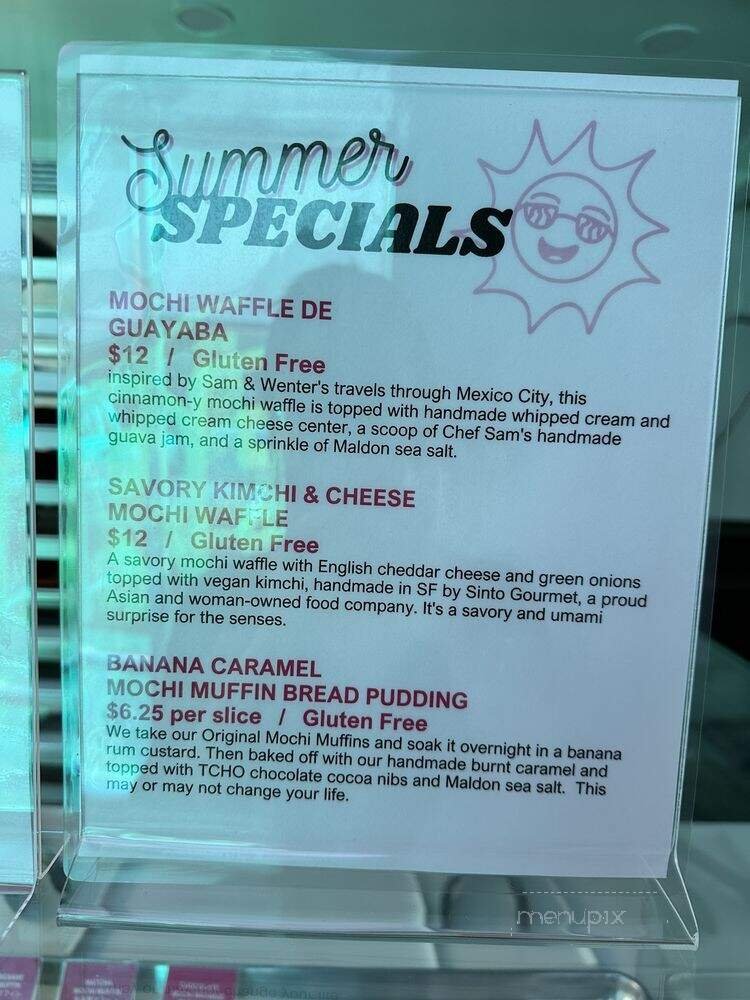 Summer
SPECIALS
MOCHI WAFFLE DE
GUAYABA
$12 / Gluten Free
inspired by Sam & Wenter's travels through Mexico City, this
cinnamon-y mochi waffle is topped with handmade whipped cream and
whipped cream cheese center, a scoop of Chef Sam's handmade
guava jam, and a sprinkle of Maldon sea salt.
SAVORY KIMCHI & CHEESE
MOCHI WAFFLE
$12 / Gluten Free
A savory mochi waffle with English cheddar cheese and green onions
topped with vegan kimchi, handmade in SF by Sinto Gourmet, a proud
Asian and woman-owned food company. It's a savory and umami
surprise for the senses.
BANANA CARAMEL
MOCHI MUFFIN BREAD PUDDING
$6.25 per slice / Gluten Free
We take our Original Mochi Muffins and soak it overnight in a banana
rum custard. Then baked off with our handmade burnt caramel and
topped with TCHO chocolate cocoa nibs and Maldon sea salt. This
may or may not change your life.
menupix